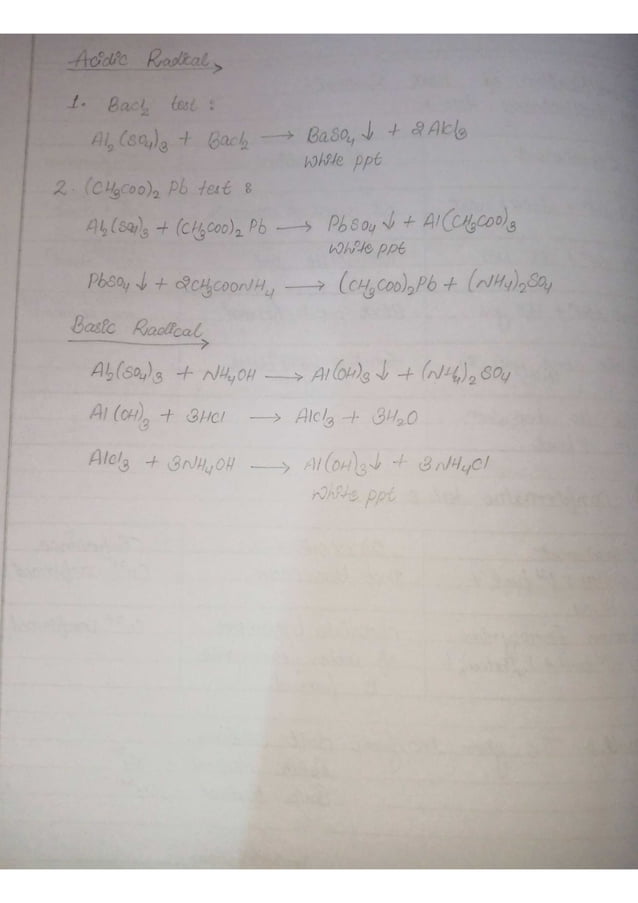 Acidic Radical
1. BaCl2 test :
Al2(SO4)3 + BaCl2 → BaSO4 ↓ + 2AlCl3
white ppt
2. (CH3COO)2 Pb test :
Al2(SO4)3 + (CH3COO)2 Pb → PbSO4 ↓ + Al(CH3COO)3
white ppt
PbSO4 ↓ + 2CH3COONH4 → (CH3COO)2Pb + (NH4)2SO4
Basic Radical
Al2(SO4)3 + NH4OH → Al(OH)3 ↓ + (NH4)2 SO4
Al(OH)3 + 3HCl → AlCl3 + 3H2O
AlCl3 + 3NH4OH → Al(OH)3 ↓ + 3NH4Cl
white ppt